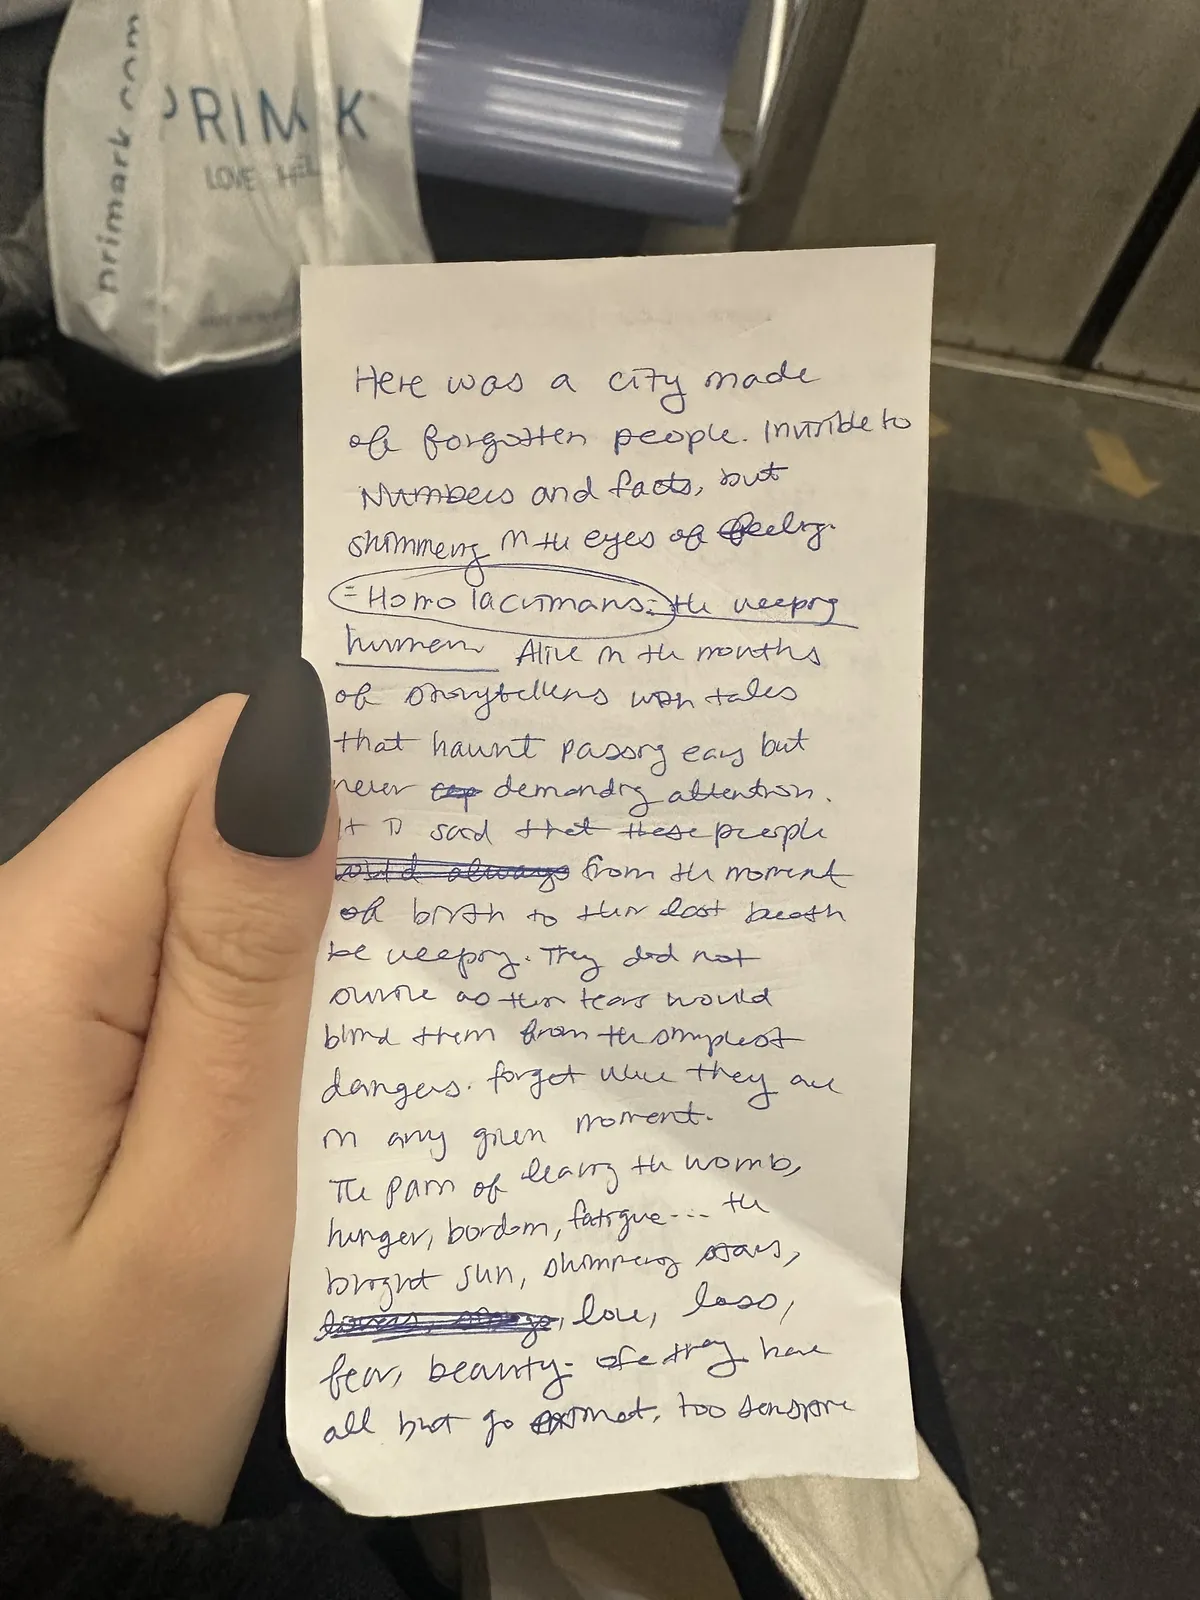 primark.com
PRIM K
LOVE HEL
Here was a city made
of forgotten people. Invisible to
Numbers and facts, but
shimmering in the eyes of feeling.
= Homo lacrimans: the weeping
human. Alive in the mouths
of storytellers with tales
that haunt passing ears but
never demanding attention.
It is said that these people
would always from the moment
of birth to their last breath
be weeping. They did not
survive as their tears would
blind them from the simplest
dangers. forget where they are
in any given moment.
The pain of leaving the womb,
hunger, bordom, fatigue... the
bright sun, shimmering stars,
love, loss,
fear, beauty- they have
all but go extinct, too sensitive